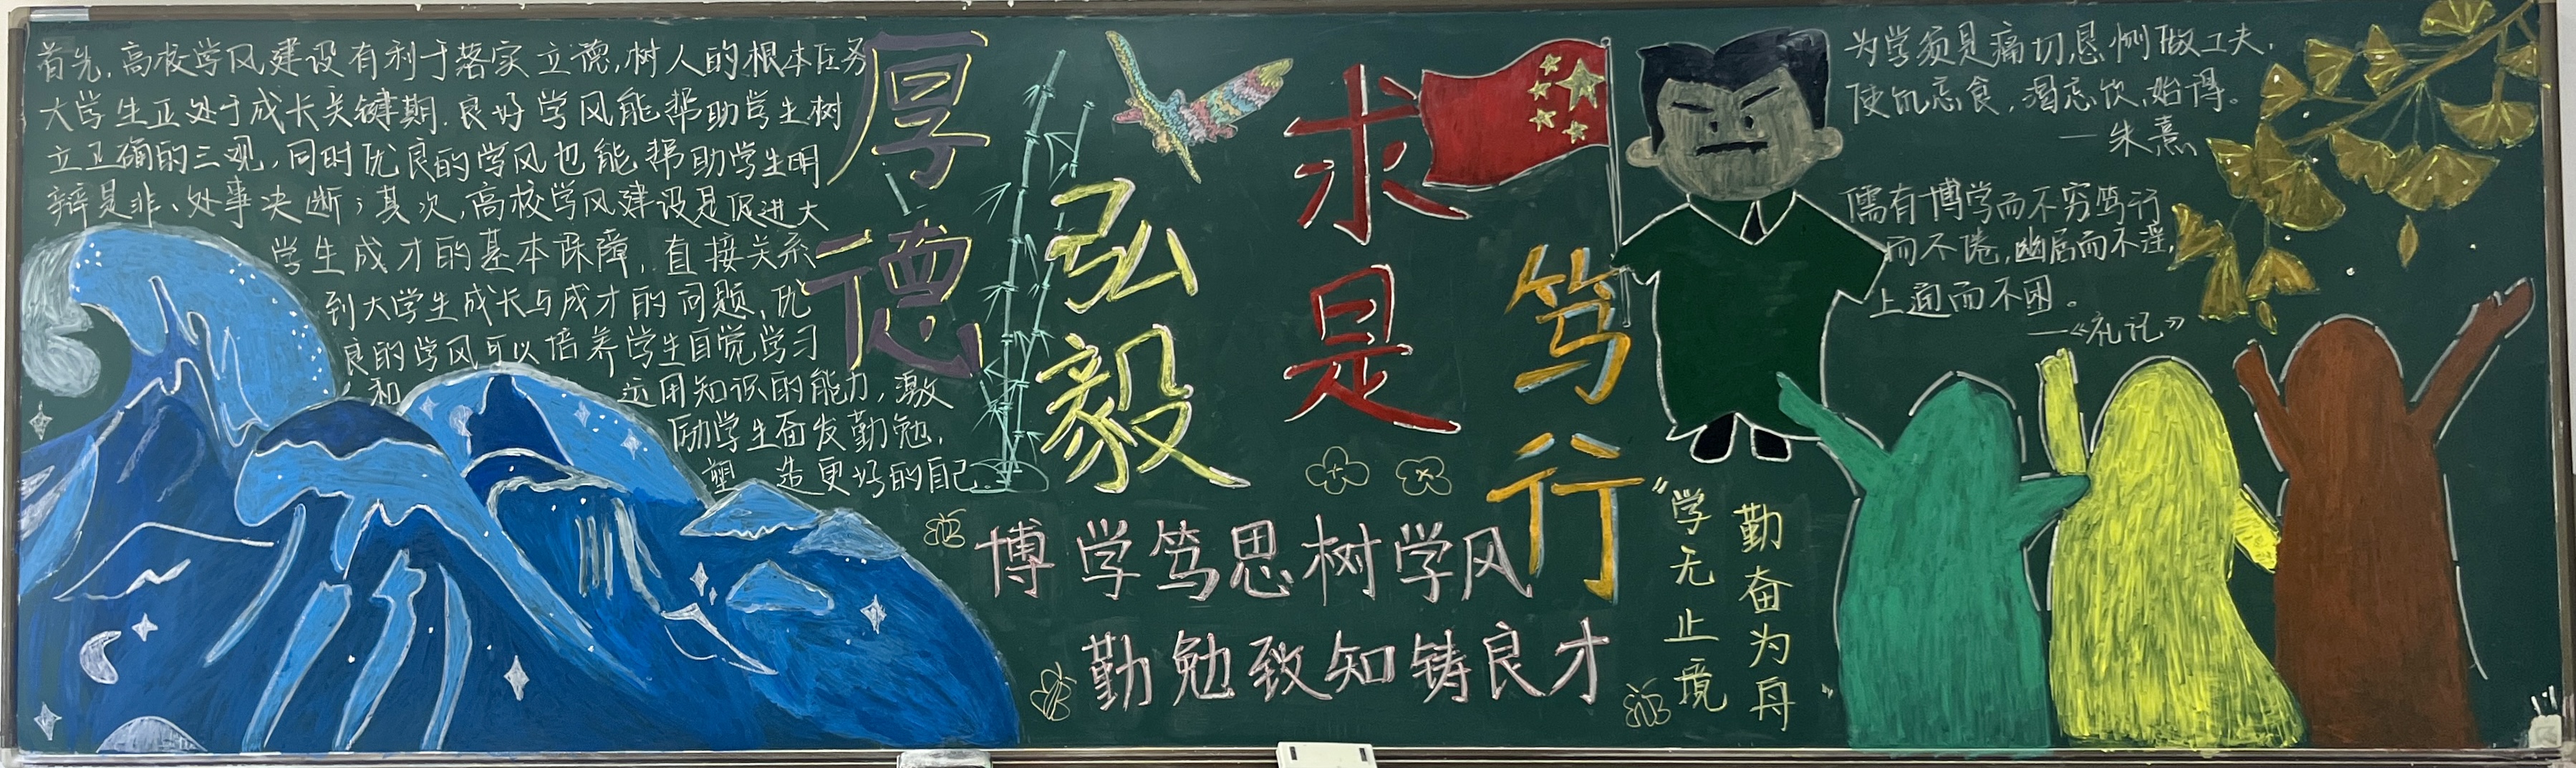 首先，高校学风建设有利于落实立德，树人的根本任务
大学生正处于成长关键期．良好学风能帮助学生树
立正确的三观，同时优良的学风也能帮助学生明
辩是非、处事决断；其次，高校学风建设是促进大
学生成才的基本保障，直接关系
到大学生成长与成才的问题，优
良的学风可以培养学生自觉学习
和运用知识的能力，激
励学生奋发勤勉，
塑造更好的自己．
厚德
弘毅
求是
笃行
博学笃思树学风
勤勉致知铸良才
为学须是痛切恳恻做工夫，
使饥忘食，渴忘饮，始得。
—朱熹
儒有博学而不穷笃行
而不倦，幽居而不淫，
上通而不困。
—《礼记》
“学无止境
勤奋为舟”